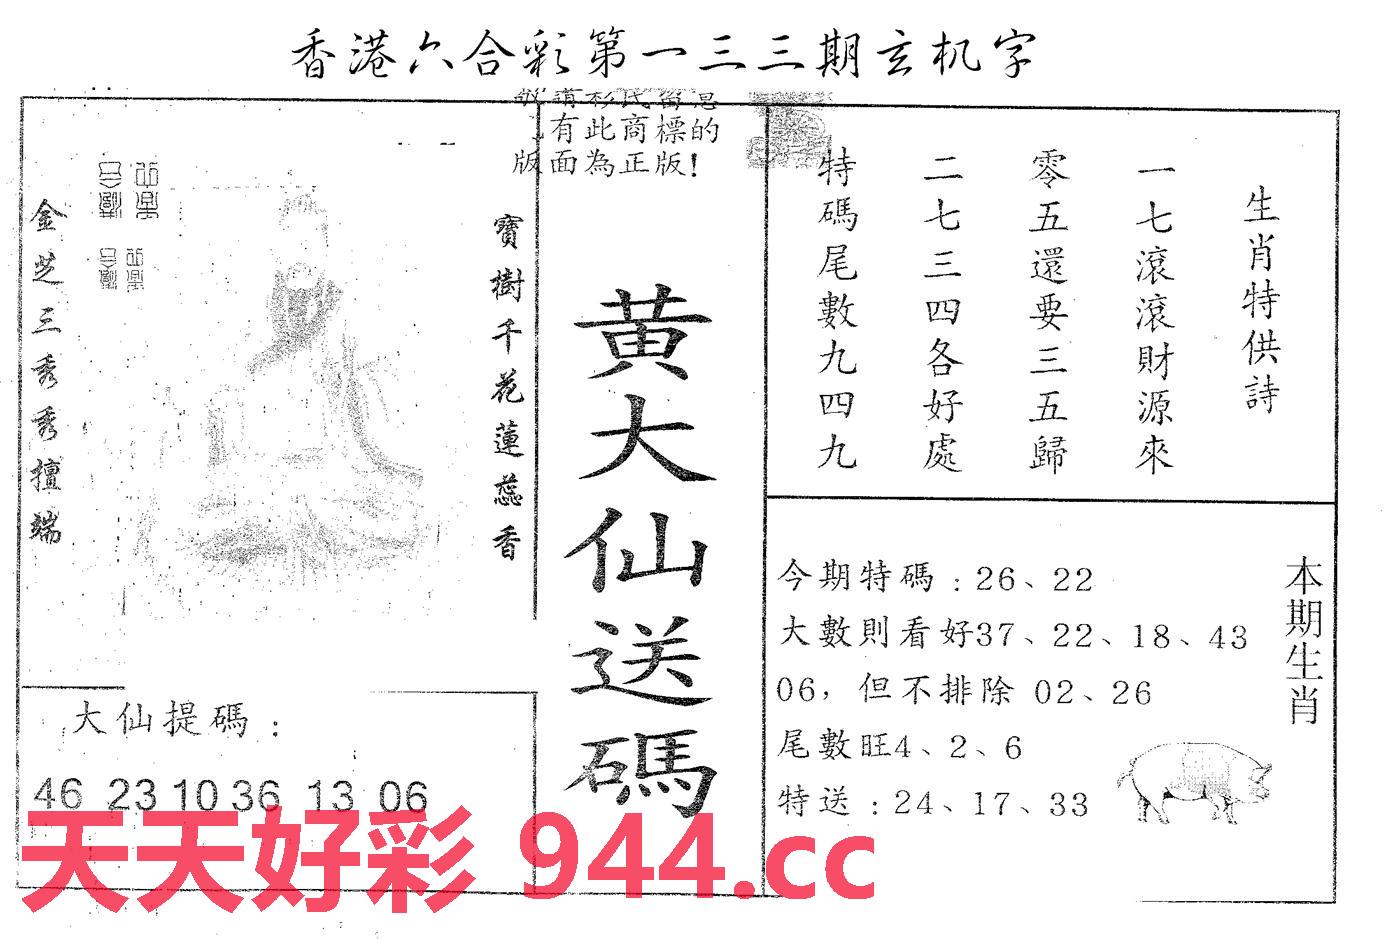 香港六合彩第一三三期玄机字
有此商標的
版面為正版!
生肖特供詩
一七滾滾財源來
零五還要三五歸
二七三四各好處
特碼尾數九四九
寶樹千花蓮蕊香
金芝三秀秀擅端
黄大仙送碼
本期生肖
今期特碼：26、22
大數則看好37、22、18、43
06，但不排除 02、26
尾數旺4、2、6
特送：24、17、33
大仙提碼：
46 23 10 36 13 06
天天好彩 944.cc